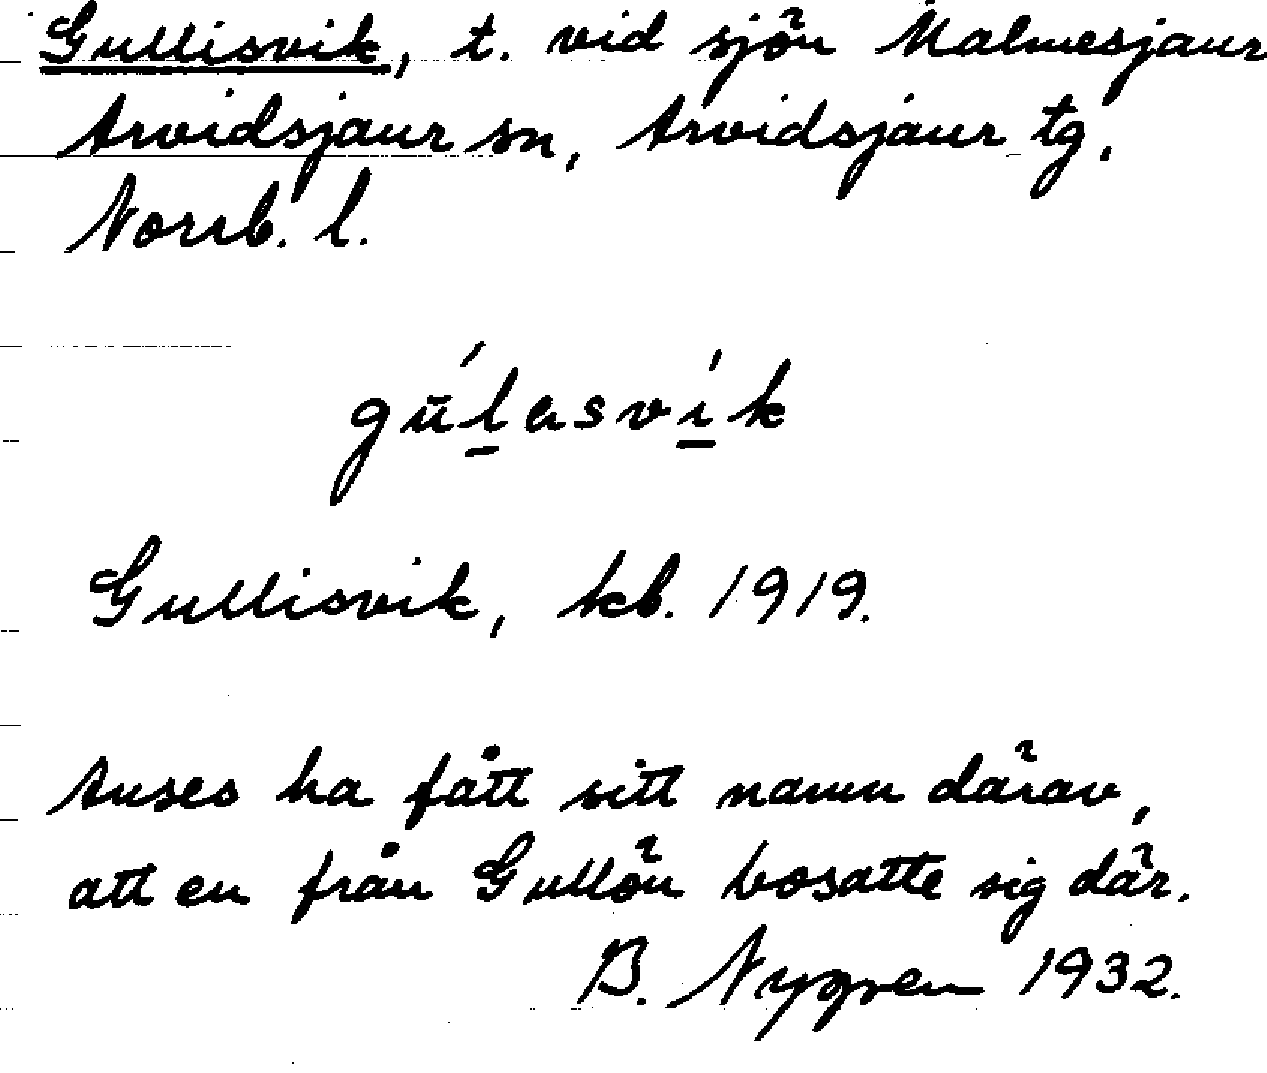 Gullisvik, t. vid sjön Malmesjaur
Arvidsjaur sn, Arvidsjaur tg,
Norrb. l.
gūlasvik
Gullisvik, kb. 1919.
Anses ha fått sitt namn därav,
att en från Gullön bosatte sig där.
B. Nygren 1932.